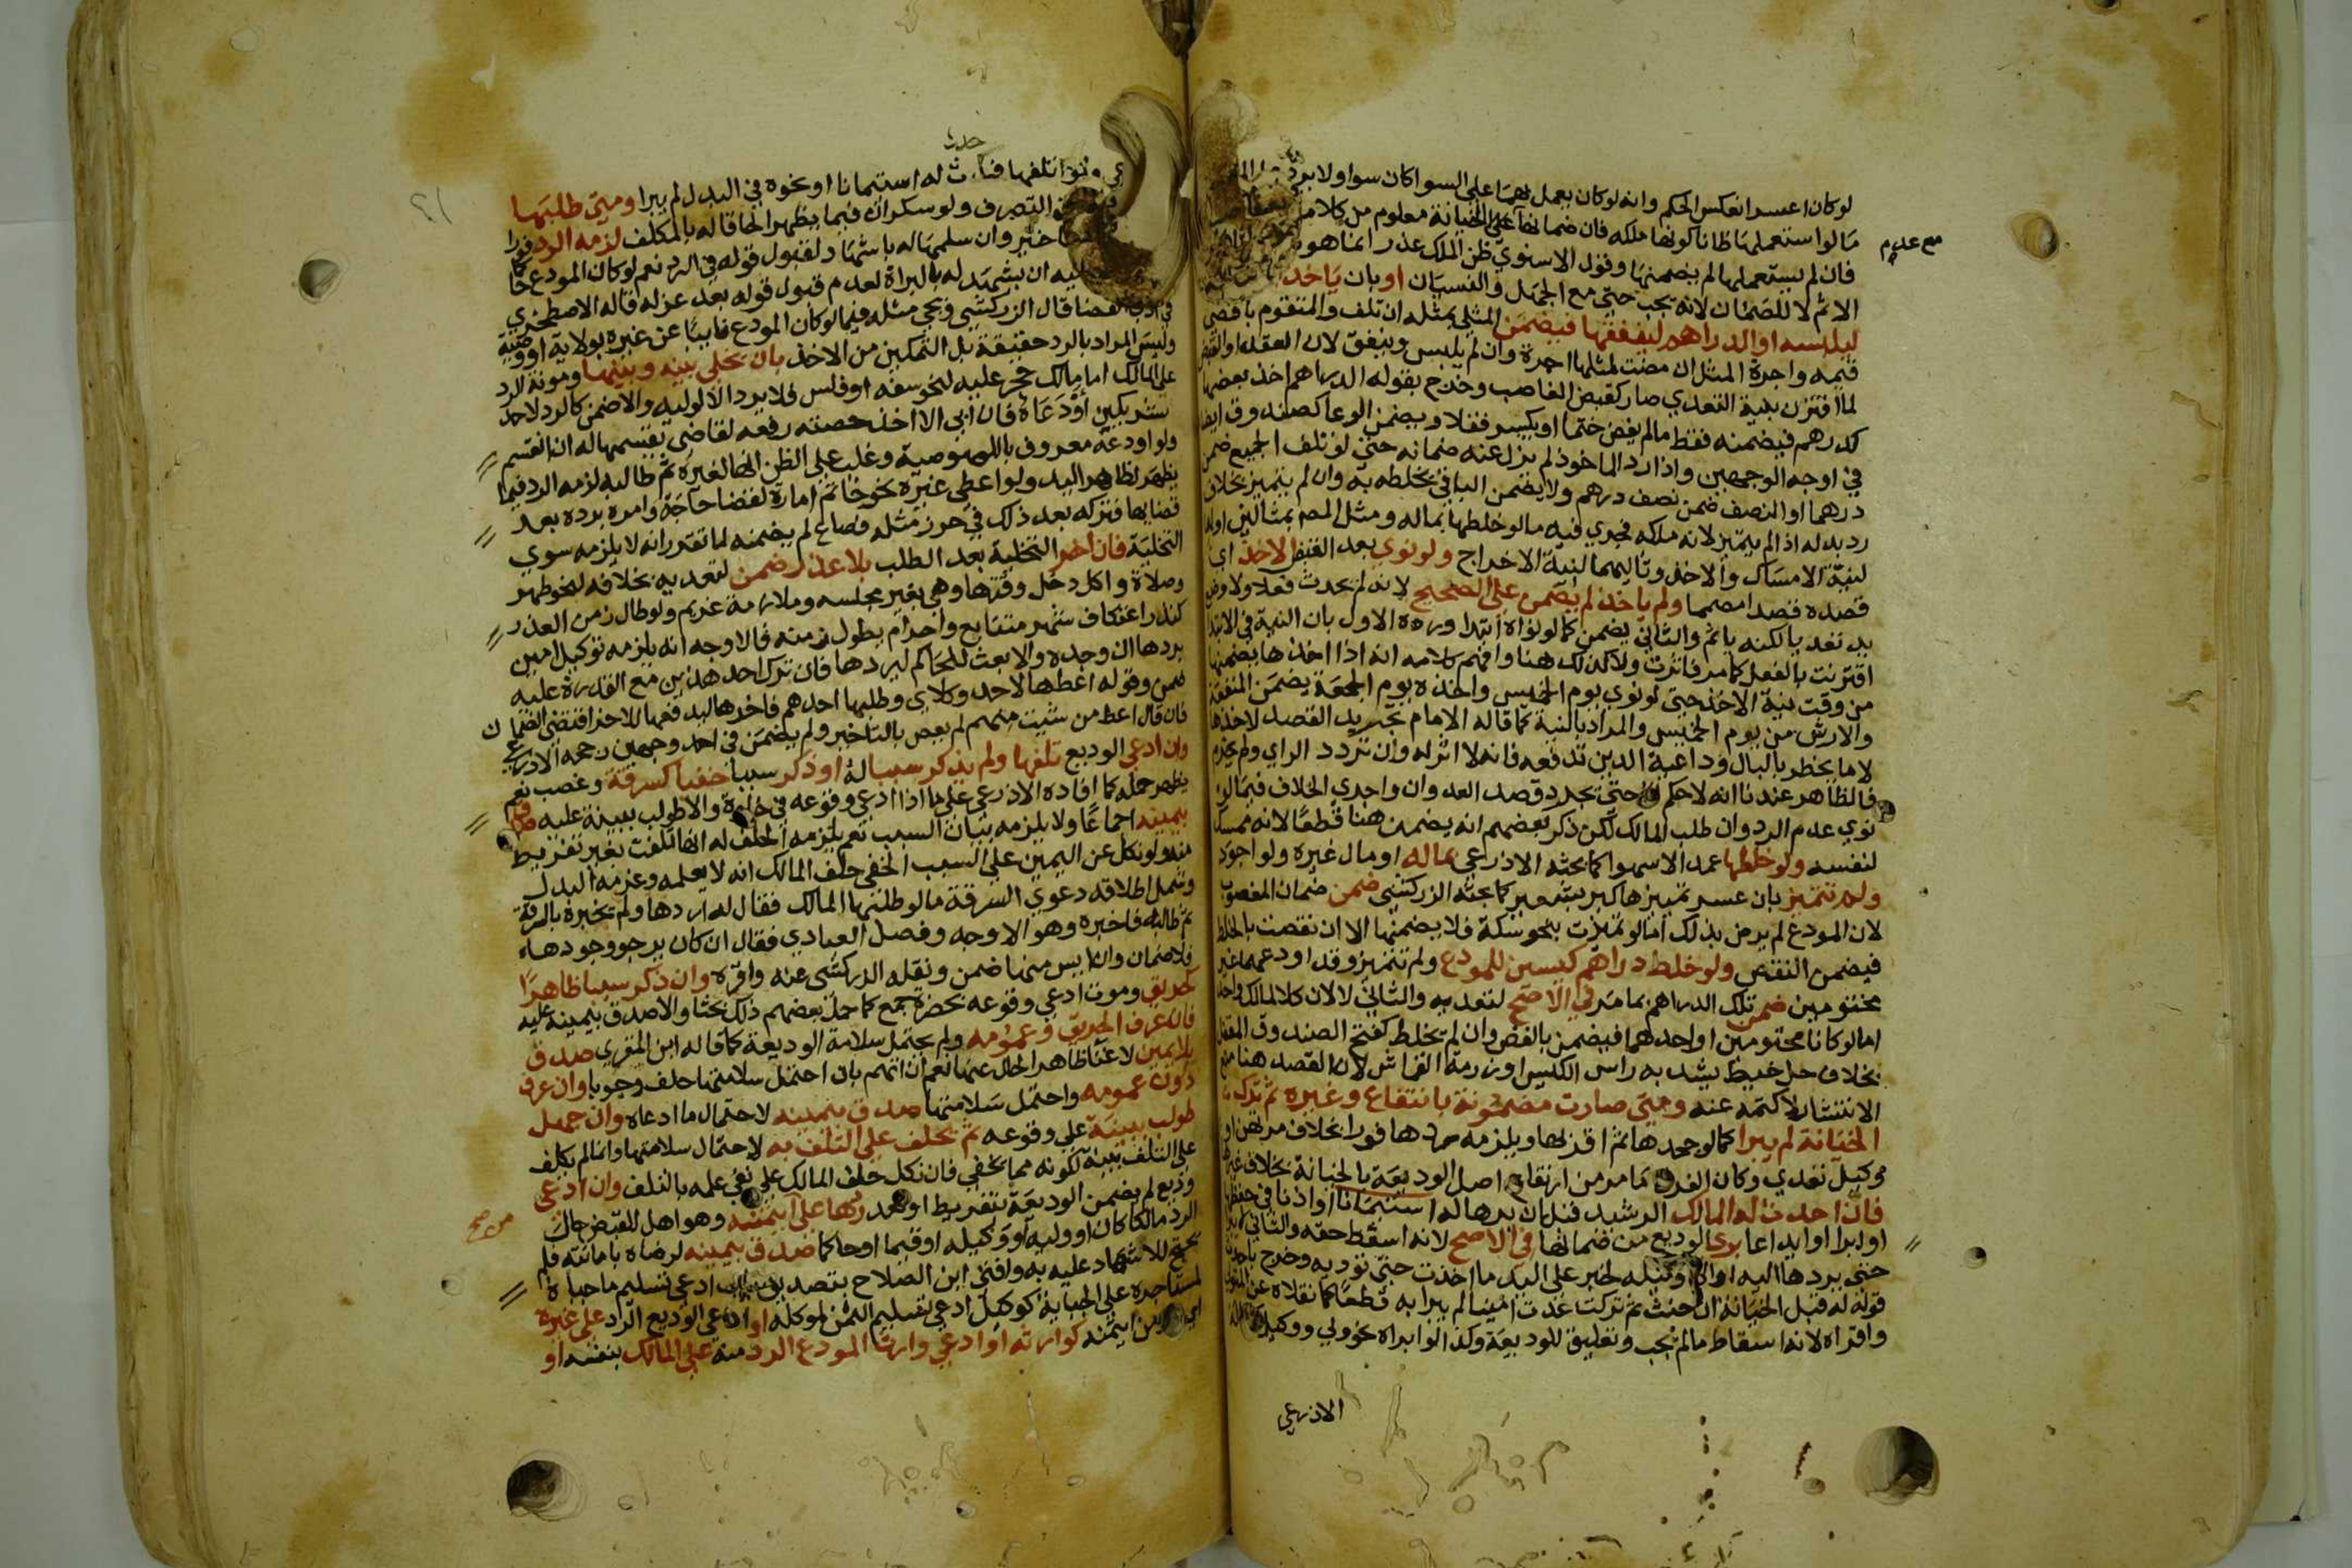 لو كان اعسر انعكس الحكم وانه لو كان يعمل بهما على السوا كان سوا ولا يرد
مالو استعملها ظانا كونها ملكه فان ضمانها على الخيانة معلوم من كلامه
مع عدم
فان لم يستعملها لم يضمنها وقول الاسنوي ظن الملك عذر انما هو
الاثم لا للضمان لانه يجب حتى مع الجهل والنسيان او بان ياخذ
ليلبسه او الدراهم لينفقها فيضمن المثلي بمثله ان تلف والمتقوم باقصى
قيمه واجرة المثل ان مضت لمثلها اجرة وان لم يلبس وينفق لان العقد او القبض
لما اقترن بنية التعدي صار كقبض الغاصب وخرج بقوله الدراهم اخذ بعضها
كدرهم فيضمنه فقط مالم يفض ختما او يكسر قفلا ويضمن الوعا كصندوق ايضا
في اوجه الوجهين واذا رد الماخوذ لم يزل عنه ضمانه حتى لو تلف الجميع ضمن
درهما او النصف ضمن نصف درهم ولا يضمن الباقي بخلطه به وان لم يتميز بخلاف
رد بدله اذا لم يتميز لانه ملكه فجرى فيه مالو خلطها بماله ومثل المصنف بمثالين اولهما
لنية الامساك والاخذ وثانيهما لنية الاخراج ولو نوى بعد القبض الاخذ اي
قصده قصدا مصمما ولم ياخذ لم يضمن على الصحيح لانه لم يحدث فعلا ولا وضع
يد تعديا لكنه ياثم والثاني يضمن كما لو نواه ابتدا ورده الاول بان النية في الابتدا
اقترنت بالفعل كما مر فاثرت ولا كذلك هنا وافهم كلامه انه اذا اخذها يضمنها
من وقت نية الاخذ حتى لو نوى يوم الخميس واخذه يوم الجمعة يضمن المنفعة
والارش من يوم الخميس والمراد بالنية كما قاله الامام تجريد القصد لاخذها
لا ما يخطر بالبال وداعية الدين تدفعه فانه لا اثر له وان تردد الراي ولم يجزم
فالظاهر عندنا انه لا حكم له حتى يجرد قصد العدوان واجري الخلاف فيما لو
نوى عدم الرد وان طلب المالك لكن ذكر بعضهم انه يضمن هنا قطعا لانه ممسك
لنفسه ولو خلطها عمدا لا سهوا كما بحثه الاذرعي بماله او مال غيره ولو اجود
ولم تتميز بان عسر تمييزها كبر بشعير كما بحثه الزركشي ضمن ضمان المغصوب
لان المودع لم يرض بذلك اما لو تميزت بنحو سكة فلا يضمنها الا ان نقصت بالخلط
فيضمن النقص ولو خلط دراهم كيسين للمودع ولم تتميز وقد اودعهما غير
مختومين ضمن تلك الدراهم بما مر في الاصح لتعديه والثاني لا لان كلا لمالك واحد
اما لو كانا مختومين او احدهما فيضمن بالفض وان لم يخلط كفتح الصندوق المقفل
بخلاف حل خيط يشد به راس الكيس او رزمة القماش لان القصد هنا منع
الانتشار لا كتمه عنه ومتى صارت مضمونة بانتفاع وغيره ثم ترك
الخيانة لم يبرا كما لو جحدها ثم اقر بها ويلزمه ردها فورا بخلاف مرتهن او
وكيل تعدى وكان الفرق ما مر من ارتفاع اصل الوديعة بالخيانة بخلاف غيرها
فان احدث له المالك الرشيد قبل ان يردها له استئمانا او اذنا في حفظها
او ابرا او ايداعا برئ الوديع من ضمانها في الاصح لانه اسقط حقه والثاني لا يبرا
حتى يردها اليه او الى وكيله لخبر على اليد ما اخذت حتى تؤديه وخرج باحدث
قوله له قبل الخيانة ان خنت ثم تركت عدت امينا لم يبرا به قطعا كما نقلاه عن المتولي
واقراه لانه اسقاط مالم يجب وتعليق للوديعة وكذا لو ابراه نحو ولي ووكيل
الاذرعي
٢١
حدث
ولو اتلفها فاحدث له استئمانا او نحوه في البدل لم يبرا ومتى طلبها
التصرف ولو سكران فيما يظهر الحاقا له بالمكلف لزمه الرد فورا
تاخير وان سلمها له باشهاد لقبول قوله في الرد نعم لو كان المودع حاكما
عليه ان يشهد له بالبراة لعدم قبول قوله بعد عزله قاله الاصطخري
في ادب القضا قال الزركشي ويجي مثله فيما لو كان المودع نايبا عن غيره بولاية او وصية
وليس المراد بالرد حقيقة بل التمكين من الاخذ بان يخلي بينه وبينها ومونة الرد
على المالك اما مالك حجر عليه لنحو سفه او فلس فلا يرد الا لوليه والا ضمن كالرد لاحد
شريكين اودعاه فان ابى الا اخذ حصته رفعه لقاض يقسمها له ان انقسم
ولو اودعه معروف باللصوصية وغلب على الظن انها لغيره ثم طالبه لزمه الرد فيما
يظهر لظاهر اليد ولو اعطى غيره نحو خاتم امارة لقضا حاجة وامره برده بعد
قضايها فتركه بعد ذلك في حرز مثله فضاع لم يضمنه لما تقدر انه لا يلزمه سوى
التخلية فان اخر التخلية بعد الطلب بلا عذر ضمن لتعديه بخلافه لنحو طهر
وصلاة واكل دخل وقتها وهي بغير مجلسه وملازمة غريم ولو طال زمن العذر
كنذر اعتكاف شهر متتابع واحرام يطول زمنه فالاوجه انه يلزمه توكيل امين
يردها ان وجده والا بعث للحاكم ليردها فان ترك احد هذين مع القدرة عليه
ضمن وقوله اعطها لاحد وكلاي وطلبها احدهم فاخر هاليدفعها للاخر اقتضى الضمان
فان قال اعط من شيت منهم لم يعص بالتاخير ولم يضمن في احد وجهين رجحه الاذرعي
وان ادعى الوديع تلفها ولم يذكر سببا له او ذكر سببا خفيا كسرقة وغصب نعم
يظهر حمله كما افاده الاذرعي على ما اذا ادعى وقوعه في خلوة والا طولب ببينة عليه صدق
بيمينه اجماعا ولا يلزمه بيان السبب نعم يلزمه الحلف له انها تلفت بغير تفريط
منه ولو نكل عن اليمين على السبب الخفي حلف المالك انه لا يعلمه وغرمه البدل
وشمل اطلاقه دعوى السرقة مالو طلبها المالك فقال له اردها ولم يخبره بالسرقة
ثم طالبه فاخبره وهو الاوجه وفصل العبادي فقال ان كان يرجو وجودها
فلا ضمان وان ايس منها ضمن ونقله الزركشي عنه واقره وان ذكر سببا ظاهرا
كحريق وموت ادعى وقوعه بحضرة جمع كما حمل بعضهم ذلك بحثا والا صدق بيمينه عليه
فان عرف الحريق وعمومه ولم يحتمل سلامة الوديعة كما قاله ابن المقري صدق
بلا يمين لاغنا ظاهر الحال عنها نعم ان اتهم بان احتمل سلامتها حلف وجوبا وان عرف
دون عمومه واحتمل سلامتها صدق بيمينه لاحتمال ما ادعاه وان جهل
طولب ببينة على وقوعه ثم يحلف على التلف به لاحتمال سلامتها وانما لم يكلف
على التلف بينة لكونه مما يخفى فان نكل حلف المالك على نفي علمه بالتلف وان ادعى
وديع لم يضمن الوديعة بتفريط او تعد ردها على من ايتمنه وهو اهل للقبض حال
من صح
الرد مالكا كان او وليه او وكيله او قيما او حاكما صدق بيمينه لرضاه بامانته فلم
يحتج للاشهاد عليه به وافتى ابن الصلاح بتصديق جاب ادعى تسليم ما جباه
لمستاجره على الجباية كوكيل ادعى تسليم الثمن لموكله او ادعى الوديع الرد على غيره
اي غير من ايتمنه كوارثه او ادعى وارث المودع الرد منه على المالك بنفسه او